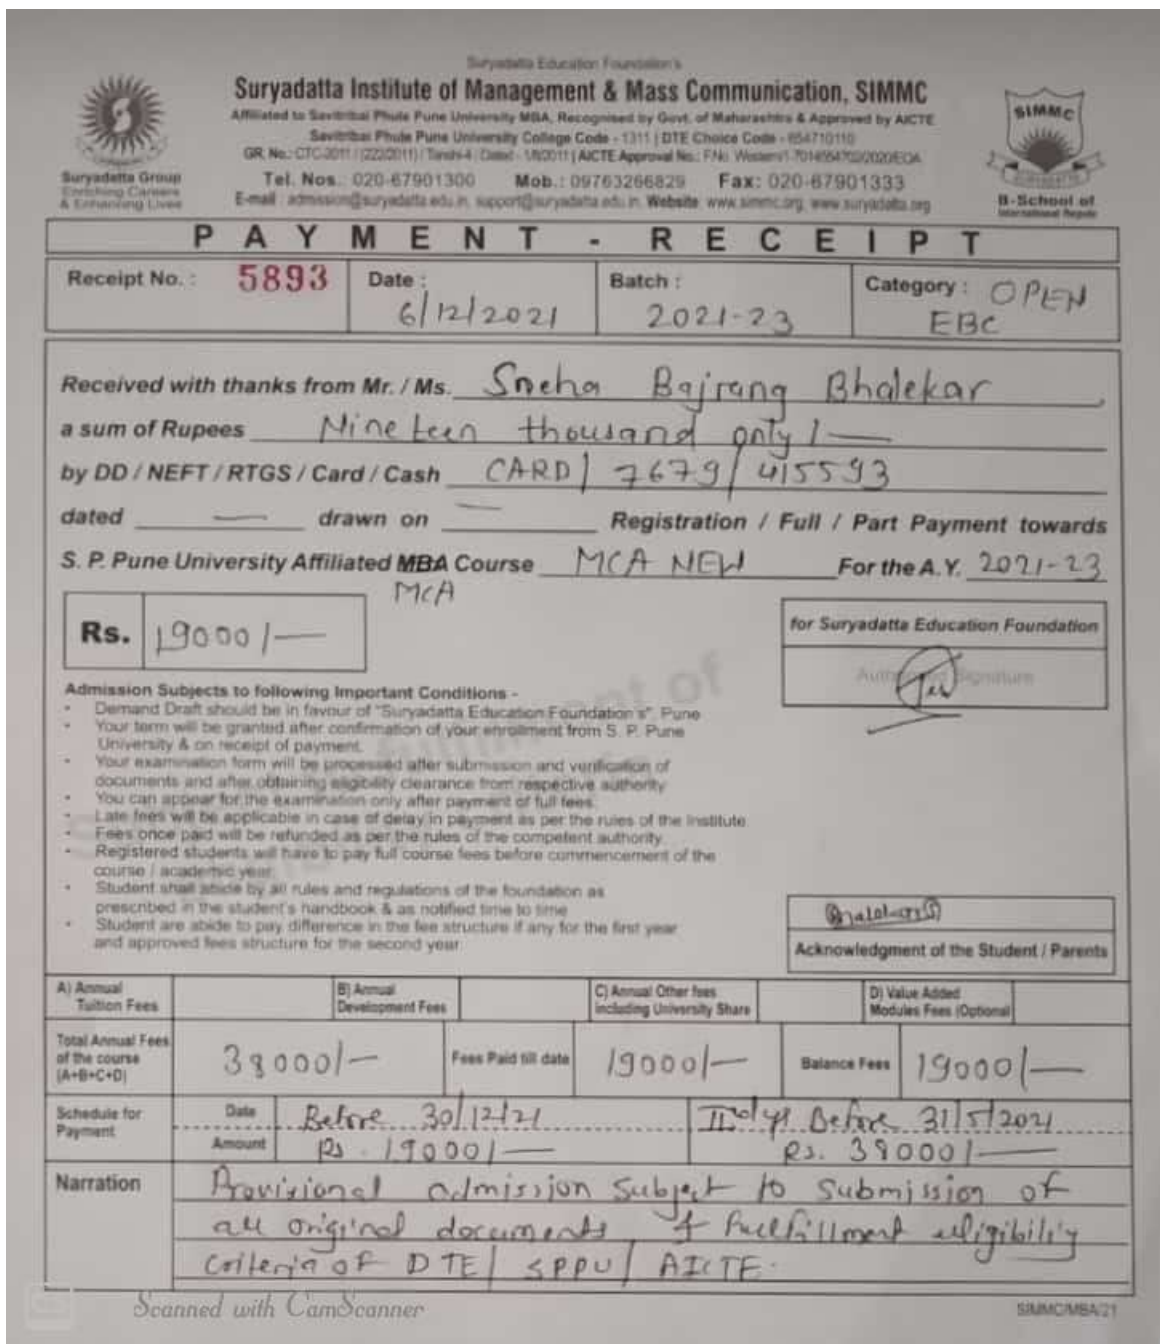 Suryadatta Education Foundation's
Suryadatta Institute of Management & Mass Communication, SIMMC
Affiliated to Savitribai Phule Pune University MBA, Recognised by Govt. of Maharashtra & Approved by AICTE
Savitribai Phule Pune University College Code - 1311 | DTE Choice Code - 654710110
GR. No.: CTC-2011 / (222/2011) / Tanshi-4 / Dated - 1/8/2011 | AICTE Approval No.:
Tel. Nos.: 020-67901300 Mob.: 09763266829 Fax: 020-67901333
E-mail : admission@suryadatta.edu.in, support@suryadatta.edu.in, Website: www.simmc.org, www.suryadatta.org
Suryadatta Group
Enriching Careers
& Enhancing Lives
SIMMC
SURYADATTA
B-School of
International Repute
PAYMENT - RECEIPT
Receipt No. : 5893
Date : 6/12/2021
Batch : 2021-23
Category : OPEN
EBC
Received with thanks from Mr. / Ms. Sneha Bajrang Bhalekar
a sum of Rupees Nineteen thousand only/-
by DD / NEFT / RTGS / Card / Cash CARD/ 7679/ 415593
dated — drawn on — Registration / Full / Part Payment towards
S. P. Pune University Affiliated MBA Course MCA NEW For the A.Y. 2021-23
MCA
Rs. 19000/-
for Suryadatta Education Foundation
Authorised Signature
Admission Subjects to following Important Conditions -
• Demand Draft should be in favour of "Suryadatta Education Foundation's", Pune
• Your term will be granted after confirmation of your enrollment from S. P. Pune
University & on receipt of payment.
• Your examination form will be processed after submission and verification of
documents and after obtaining eligibility clearance from respective authority
• You can appear for the examination only after payment of full fees.
• Late fees will be applicable in case of delay in payment as per the rules of the Institute.
• Fees once paid will be refunded as per the rules of the competent authority.
• Registered students will have to pay full course fees before commencement of the
course / academic year.
• Student shall abide by all rules and regulations of the foundation as
prescribed in the student's handbook & as notified time to time
• Student are abide to pay difference in the fee structure if any for the first year
and approved fees structure for the second year.
Acknowledgment of the Student / Parents
A) Annual
Tuition Fees
B) Annual
Development Fees
C) Annual Other fees
including University Share
D) Value Added
Modules Fees (Optional)
Total Annual Fees
of the course
(A+B+C+D)
38000/-
Fees Paid till date
19000/-
Balance Fees
19000/-
Schedule for
Payment
Date Before 30/12/21 IInd yr Before 31/5/2021
Amount Rs. 19000/- Rs. 38000/-
Narration
Provisional admission subject to submission of
all original documents & fullfillment eligibility
criteria of DTE/ SPPU/ AICTE.
Scanned with CamScanner
SIMMC/MBA/21